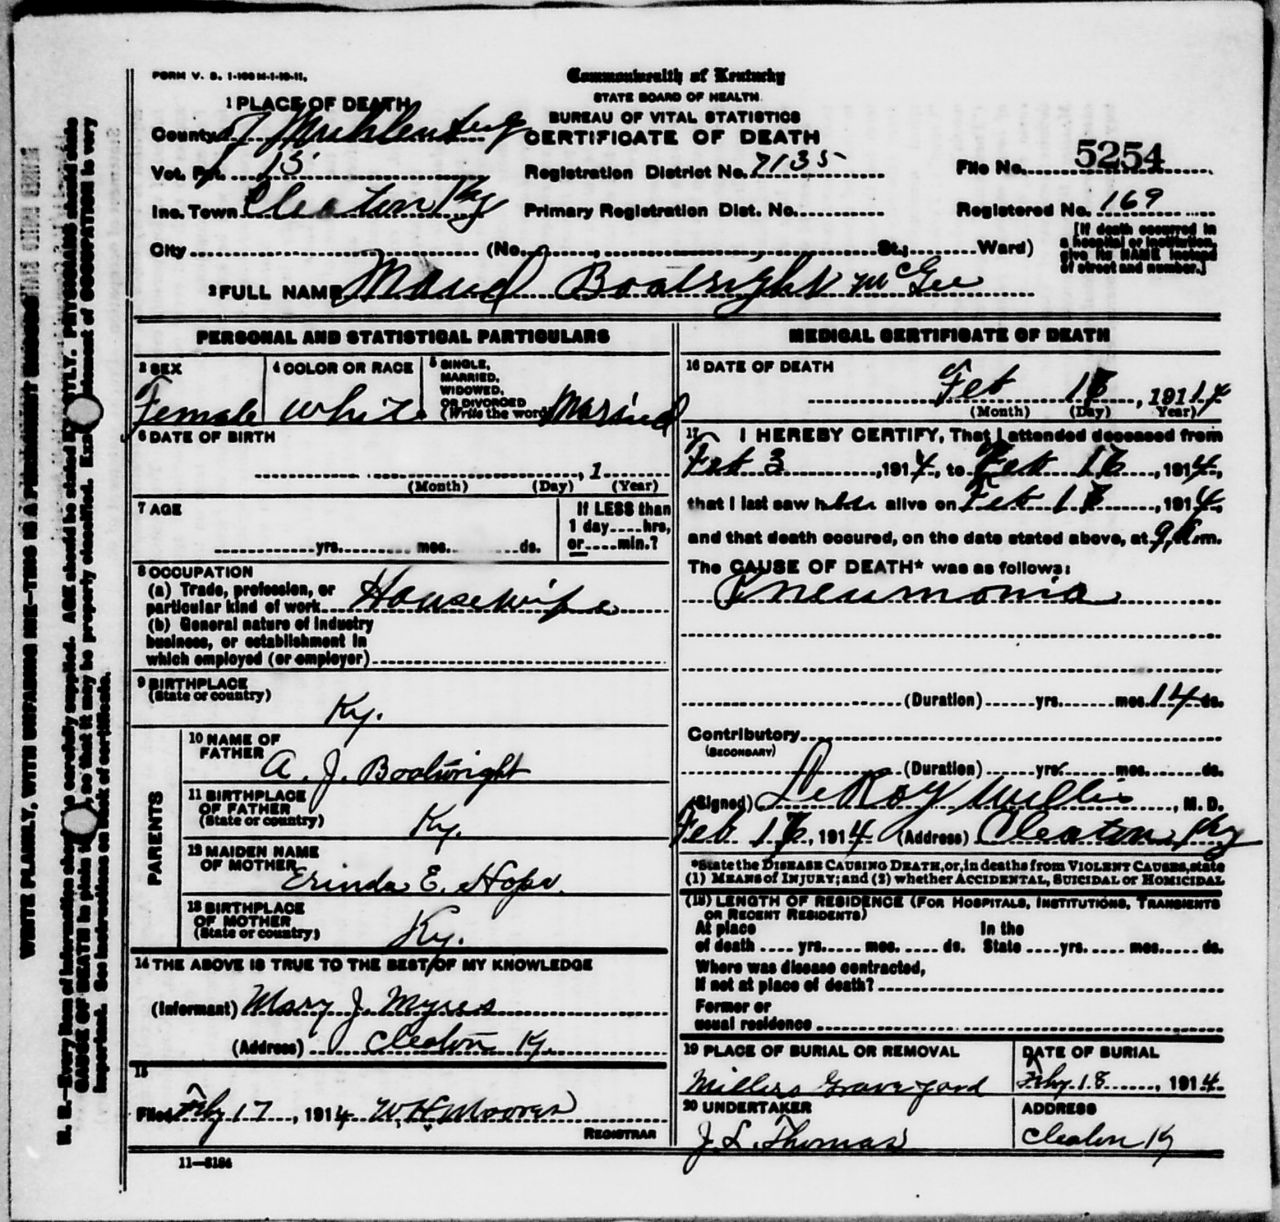 FORM V. S. 1-100 M-1-10-11.
Commonwealth of Kentucky
STATE BOARD OF HEALTH
BUREAU OF VITAL STATISTICS
CERTIFICATE OF DEATH
1 PLACE OF DEATH
County of Muhlenberg
Vot. Pct. 13
Inc. Town Cleaton Ky
City (No. , St.; Ward)
Registration District No. 7135
Primary Registration Dist. No.
File No. 5254
Registered No. 169
[If death occurred in
a hospital or institution,
give its NAME instead
of street and number.]
2 FULL NAME Maud Boatright McGee
PERSONAL AND STATISTICAL PARTICULARS
3 SEX
Female
4 COLOR OR RACE
White
5 SINGLE,
MARRIED,
WIDOWED,
OR DIVORCED
(Write the word) Married
6 DATE OF BIRTH
, 1
(Month) (Day) (Year)
7 AGE
yrs. mos. ds.
If LESS than
1 day....hrs,
or....min.?
8 OCCUPATION
(a) Trade, profession, or
particular kind of work Housewife
(b) General nature of industry
business, or establishment in
which employed (or employer)
9 BIRTHPLACE
(State or country)
Ky.
PARENTS
10 NAME OF
FATHER
A. J. Boatwright
11 BIRTHPLACE
OF FATHER
(State or country)
Ky.
12 MAIDEN NAME
OF MOTHER
Erinda E. Hope.
13 BIRTHPLACE
OF MOTHER
(State or country)
Ky.
14 THE ABOVE IS TRUE TO THE BEST OF MY KNOWLEDGE
(Informant) Mary J. Myres
(Address) Cleaton Ky.
15
Filed Feby 17, 1914 W. H. Moores
REGISTRAR
11—5184
MEDICAL CERTIFICATE OF DEATH
16 DATE OF DEATH
Feb , 1914
(Month) (Day) (Year)
17 I HEREBY CERTIFY, That I attended deceased from
Feb 3, 1914, to Feb , 1914,
that I last saw her alive on Feb , 1914,
and that death occured, on the date stated above, at 9 A.m.
The CAUSE OF DEATH* was as follows:
Pneumonia
(Duration) yrs. mos. 14 ds.
Contributory
(SECONDARY)
(Duration) yrs. mos. ds.
(Signed) LeRoy Willis, M. D.
Feb , 1914 (Address) Cleaton Ky
*State the DISEASE CAUSING DEATH, or, in deaths from VIOLENT CAUSES, state
(1) MEANS of INJURY; and (2) whether ACCIDENTAL, SUICIDAL or HOMICIDAL
(18) LENGTH OF RESIDENCE (FOR HOSPITALS, INSTITUTIONS, TRANSIENTS
OR RECENT RESIDENTS)
At place In the
of death yrs. mos. ds. State yrs. mos. ds.
Where was disease contracted,
If not at place of death?
Former or
usual residence
19 PLACE OF BURIAL OR REMOVAL
Millers Graveyard
DATE OF BURIAL
Feby. 18, 1914
20 UNDERTAKER
J. L. Thomas
ADDRESS
Cleaton Ky
WRITE PLAINLY, WITH UNFADING INK—THIS IS A PERMANENT RECORD
N. B.—Every item of information should be carefully supplied. AGE should be stated EXACTLY. PHYSICIANS should state
CAUSE OF DEATH in plain , so that it may be properly classified. Exact statement of OCCUPATION is very
important. See instructions on back of certificate.